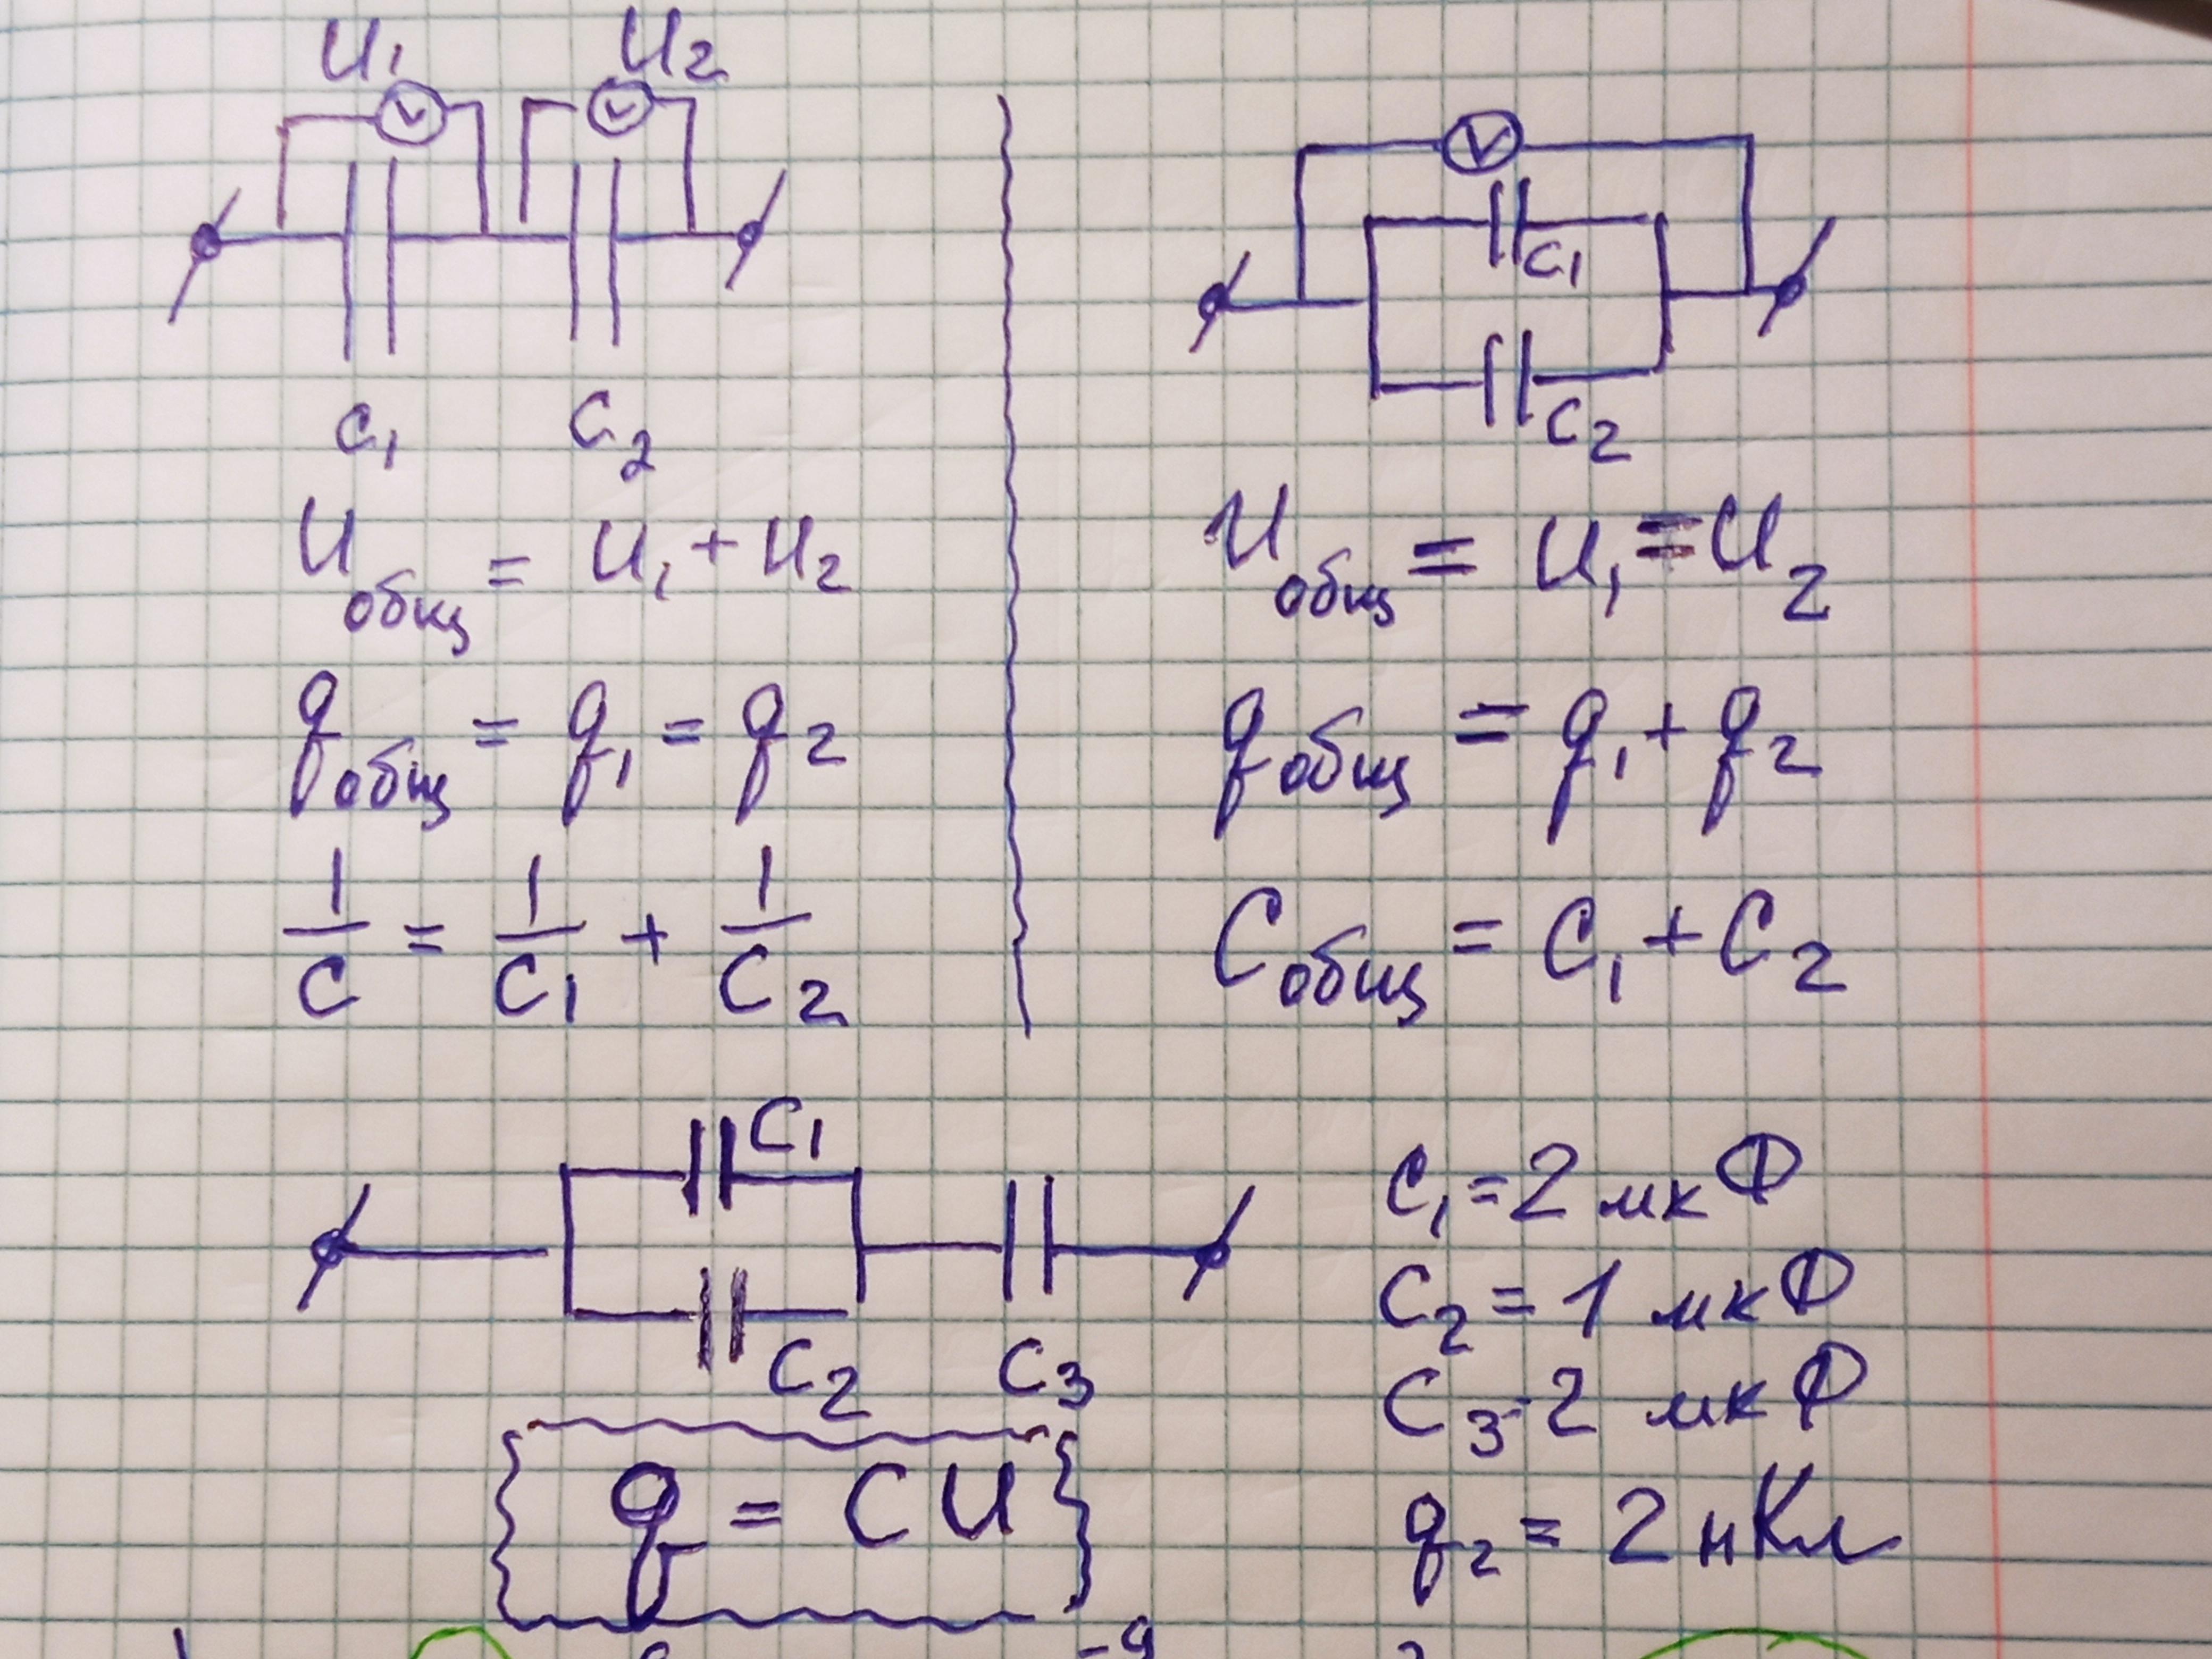 U₁ U₂
V V
C₁ C₂
Uобщ = U₁ + U₂
qобщ = q₁ = q₂
1/C = 1/C₁ + 1/C₂
V
C₁
C₂
Uобщ = U₁ = U₂
qобщ = q₁ + q₂
Cобщ = C₁ + C₂
C₁
C₂ C₃
q = CU
C₁ = 2 мкФ
C₂ = 1 мкФ
C₃ - 2 мкФ
q₂ = 2 нКл
-9